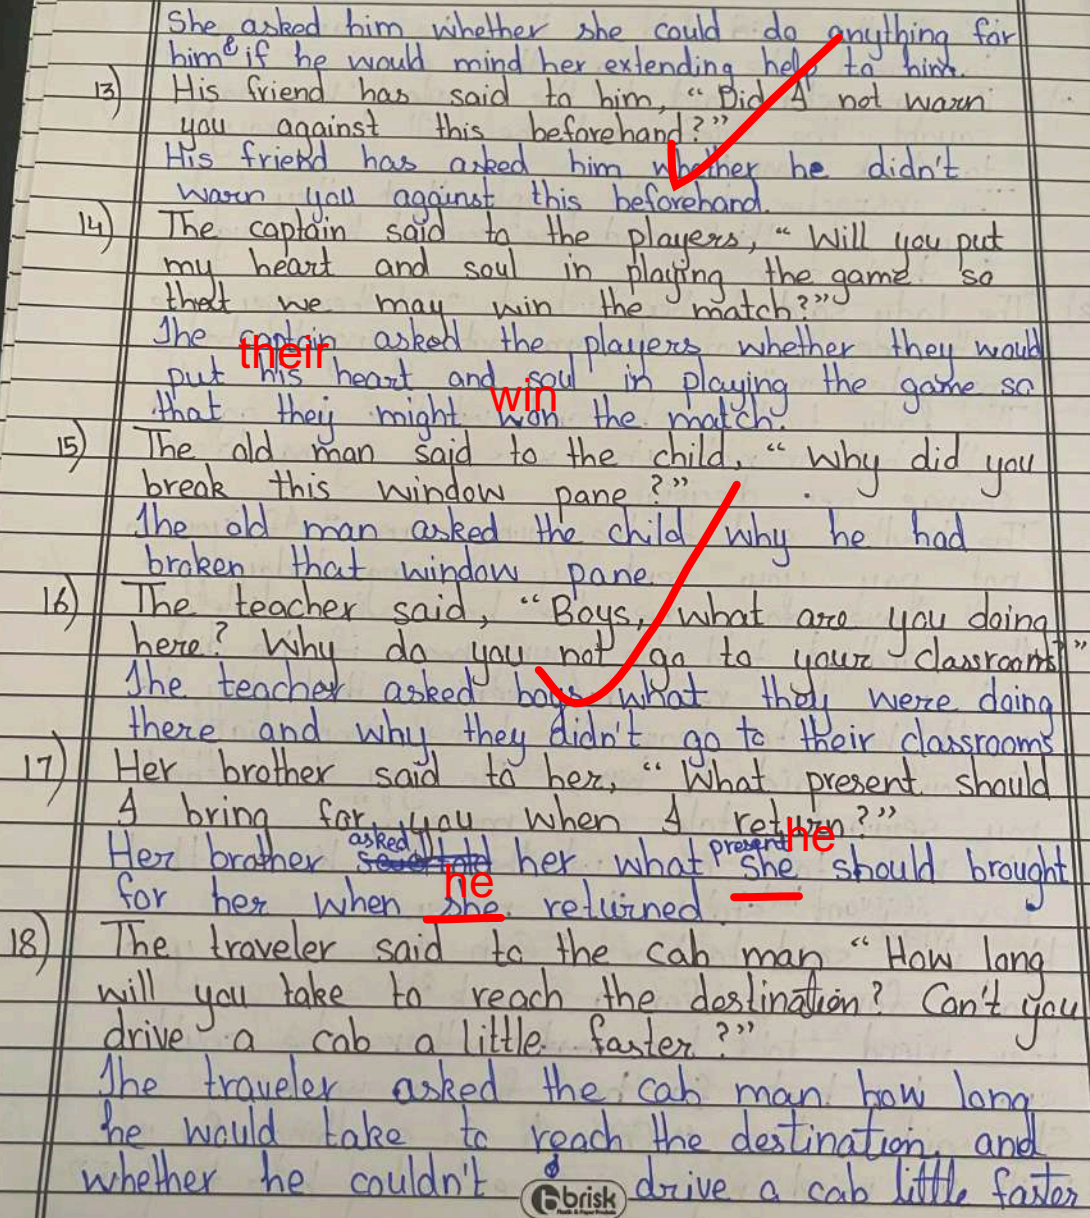 She asked him whether she could do anything for
him & if he would mind her extending help to him.
13) His friend has said to him, "Did I not warn
you against this beforehand?"
His friend has asked him whether he didn't
warn you against this beforehand.
14) The captain said to the players, "Will you put
my heart and soul in playing the game so
that we may win the match?"
The captain asked the players whether they would
their
put his heart and soul in playing the game so
win
that they might won the match.
15) The old man said to the child, "Why did you
break this window pane?"
The old man asked the child why he had
broken that window pane
16) The teacher said, "Boys, what are you doing
here? Why do you not go to your classrooms?"
The teacher asked boys what they were doing
there and why they didn't go to their classrooms
17) Her brother said to her, "What present should
I bring for you when I return?"
asked present he
Her brother told her what she should brought
he
for her when she returned.
18) The traveler said to the cab man "How long
will you take to reach the destination? Can't you
drive a cab a little faster?"
The traveler asked the cab man how long
he would take to reach the destination, and
whether he couldn't drive a cab little faster
brisk